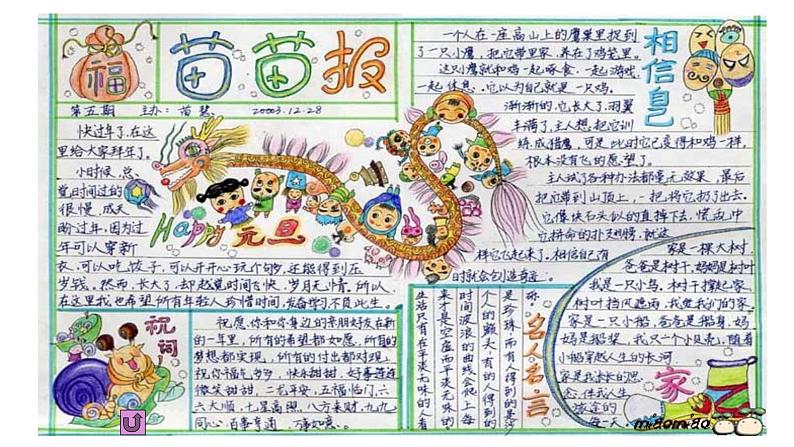 福
苗苗报
第五期 主办：苗慧 20003.12.28
快过年了，在这
里给大家拜年了。
小时候，总
觉时间过的
很慢，成天
盼过年，因为过
年可以穿新
衣，可以吃饺子，可以开开心玩个够，还能得到压
岁钱。然而，长大了，却越觉时间飞快，岁月无情。所以，
在这里我也希望所有年轻人珍惜时间，发奋学习不负此生。
Happy 元旦
相信自己
一个人在一座高山上的鹰巢里捉到
了一只小鹰，把它带回家，养在了鸡笼里。
这只鹰就和鸡一起啄食，一起游戏，
一起休息，它以为自己就是一只鸡。
渐渐的，它长大了，羽翼
丰满了，主人想把它训
练成猎鹰，可是此时它已变得和鸡一样，
根本没有飞的愿望了。
主人试了各种办法都毫无效果，最后
把它带到山顶上，一把将它扔了出去。
它像快石头似的直掉下去，慌乱中
它拼命的扑翅膀，就这
样它飞起来了。相信自己有
时就会创造奇迹。
祝词
祝愿你和你身边的亲朋好友在新
的一年里，所有的希望都如愿，所有的
梦想都实现，所有的付出都对现。
祝你福气多多，快乐甜甜，好事连连
微笑甜甜，二老平安，五福临门，六
六大顺，七星高照，八方来财，九九
同心，百事亨通，万事如意。
名人名言
是珍珠，而有人得到的是
个人的额头，有的人得到的
时间波浪的曲线会爬上每
来才是空虚而平淡无味的
生活只有在平淡无味的人看
家
家是一棵大树，
爸爸是树干，妈妈是树叶
我是一只小鸟，树干撑起家
树叶挡风遮雨，我爱我们的家。
家是一只小船，爸爸是船身，妈
妈是船桨，我只一个小贝壳，随着
小船穿越人生的长河
家是我成长的
伴我人生
旅途的
每一天
U
miaomiao